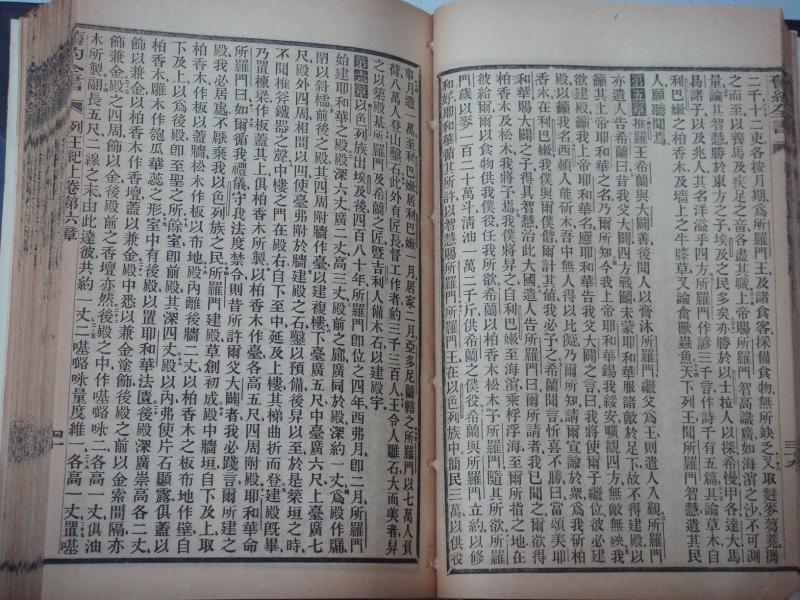 二千十二吏各按月期爲所羅門王及諸食客採備食物無所缺乏又取麰麥
之而至以養馬及疾足之畜各盡其職上帝賜所羅門智高識廣如海濱之沙不可測
量論其智慧勝於東方之子埃及之民多矣亦勝於以士拉人以探希慢甲各達大馬
曷諸子以及兆人其名洋溢乎四方所羅門作諺三千言作詩千有五篇其論草木自
利巴嫩之柏香木及墻上之牛膝草又論禽獸蟲魚天下列王聞所羅門智慧遣其民
人願聽聞焉
第五章推羅王希蘭與大闢善後聞人以膏沐所羅門繼父爲王則遣人入覲所羅門
亦遣人告希蘭曰昔我父大闢四方戰鬬未蒙耶和華服諸敵於足下故不得建殿以
籲其上帝耶和華之名乃爾所知今我上帝耶和華錫我綏安曠觀四方無敵無殃我
欲建殿籲我上帝耶和華名應耶和華告我父大闢之言曰我將使爾子繼位彼必建
殿籲我名西頓人能斫木吾中無人得以比儗乃爾所知請爾宣諭於衆爲我斫柏
香木在利巴嫩我僕與爾僕偕爾計其値我必予之希蘭聞言忻喜不勝曰當頌美耶
和華賜大闢之子得具智慧治此大國遣人告所羅門曰爾所請者我已聞之爾欲得
柏香木及松木我將予焉我僕將昇之自利巴嫩至海濱乘桴浮海至爾所指之地在
彼給爾爾以食物供我僕役任我所欲希蘭以柏香木松木予所羅門隨其所欲所羅
門歲以麥一百二十萬斗淸油一萬二千斤供希蘭與所羅門立約以修
和好耶和華循其所許以智慧賜所羅門所羅門王在以色列族中簡民三萬以供役
三十九
事月遣一萬至利巴嫩居利巴嫩一月居家二月亞多尼蘭轄之所羅門以七萬人負
荷八萬人登山鑿石此外有匠長督工作者約三千三百人王令人雕石大而美者舁
之以築殿基所羅門及希蘭之匠曁吉利人備木石以建殿宇
第六章以色列族出埃及後四百八十年所羅門卽位之四年西弗月卽二月所羅門
始建耶和華之殿殿深六丈廣二丈高三丈殿前之廊廣同於殿深約一丈爲殿作牖
閉以斜櫺前後之殿其四周附牆作臺以建複樓下臺廣五尺中臺廣六尺上臺廣七
尺殿外四周相間以凹使臺弗附於牆建殿之石鑿以預備後舁以至於是築垣之時
不聞椎斧鐵器之聲中樓之門在殿右自下至中延及上樓其梯曲折而登建殿旣畢
乃置樑梁作板蓋其上俱柏香木所製以柏香木作臺各高五尺四周附殿耶和華命
所羅門曰如爾循我禮儀守我法度禁令則昔所許爾父大闢者我必踐言爾所建之
殿我必居處不厭棄我以色列之民所羅門建殿草創初成殿中牆垣自下及上取
柏香木作板以蓋牆松木作板以布地殿內離後牆二丈以柏香木之板布地作壁自
下及上以爲後殿卽至聖之所餘室卽前殿其深四丈殿以內弗使片石顯露俱蓋以
柏香木雕木作匏瓜華蕊之形室中有後殿以置耶和華法匱後殿深廣崇高各二丈
飾以兼金以柏香木作香壇蓋以兼金殿中悉以兼金塗飾後殿之前以金索間隔亦
飾兼金殿之四周飾以金後殿前之香壇亦然後殿之中作𠼻㗉𠹌二各高一丈俱油
木所製翮長五尺二線之末由此達彼共約一丈二𠼻㗉𠹌量度維一各高一丈置𠼻
舊約全書
列王紀上卷第六章
四十